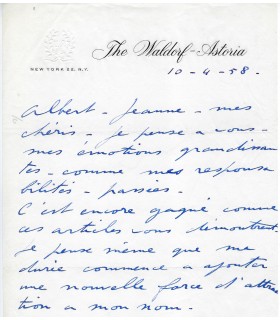 The Waldorf-Astoria
NEW YORK 22, N.Y.
10-4-58.
Albert - Jeanne - mes
chéris - je pense à vous -
mes émotions grandissan
tes - comme mes responsa
bilités - passées -
C'est encore gagné comme
ces articles vous démontrent.
je pense même que ma
durée commence à ajouter
une nouvelle force d'attrac
tion à mon nom.